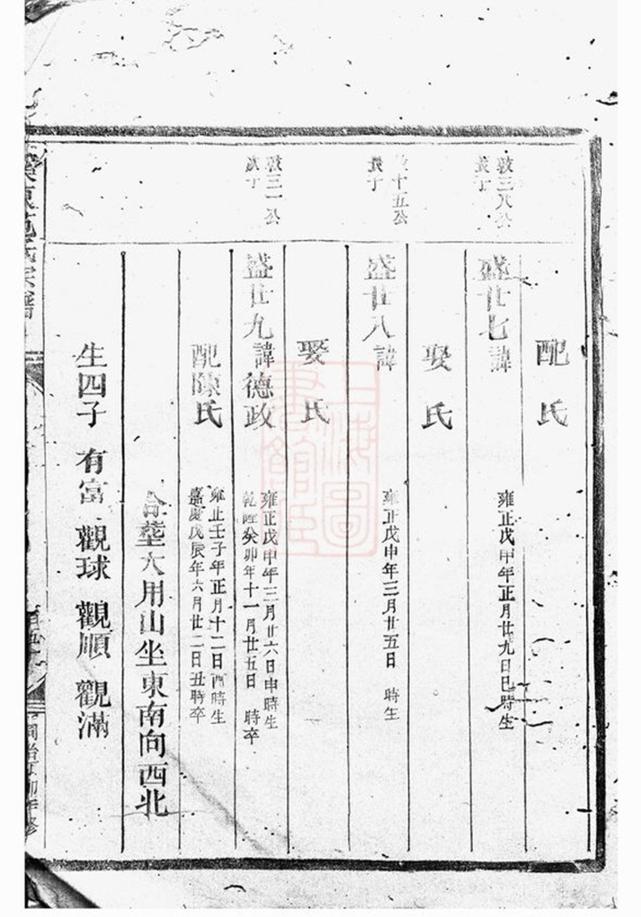 配 氏
敦三八公
長子
盛廿七 諱 雍正戊申年正月廿九日巳時生
娶 氏
十五公
長子
盛廿八 諱 雍正戊申年三月廿五日 時生
娶 氏
敦三一公
盛廿九 諱德政 雍正戊申年三月廿六日申時生
乾隆癸卯年十一月廿五日 時卒
配陳氏 雍正壬子年正月十二日酉時生
嘉慶戊辰年六月廿二日丑時卒
合墾大用山坐東南向西北
生四子 有富 觀球 觀順 觀滿
氏宗譜
同治丁卯年修
上海圖書館藏